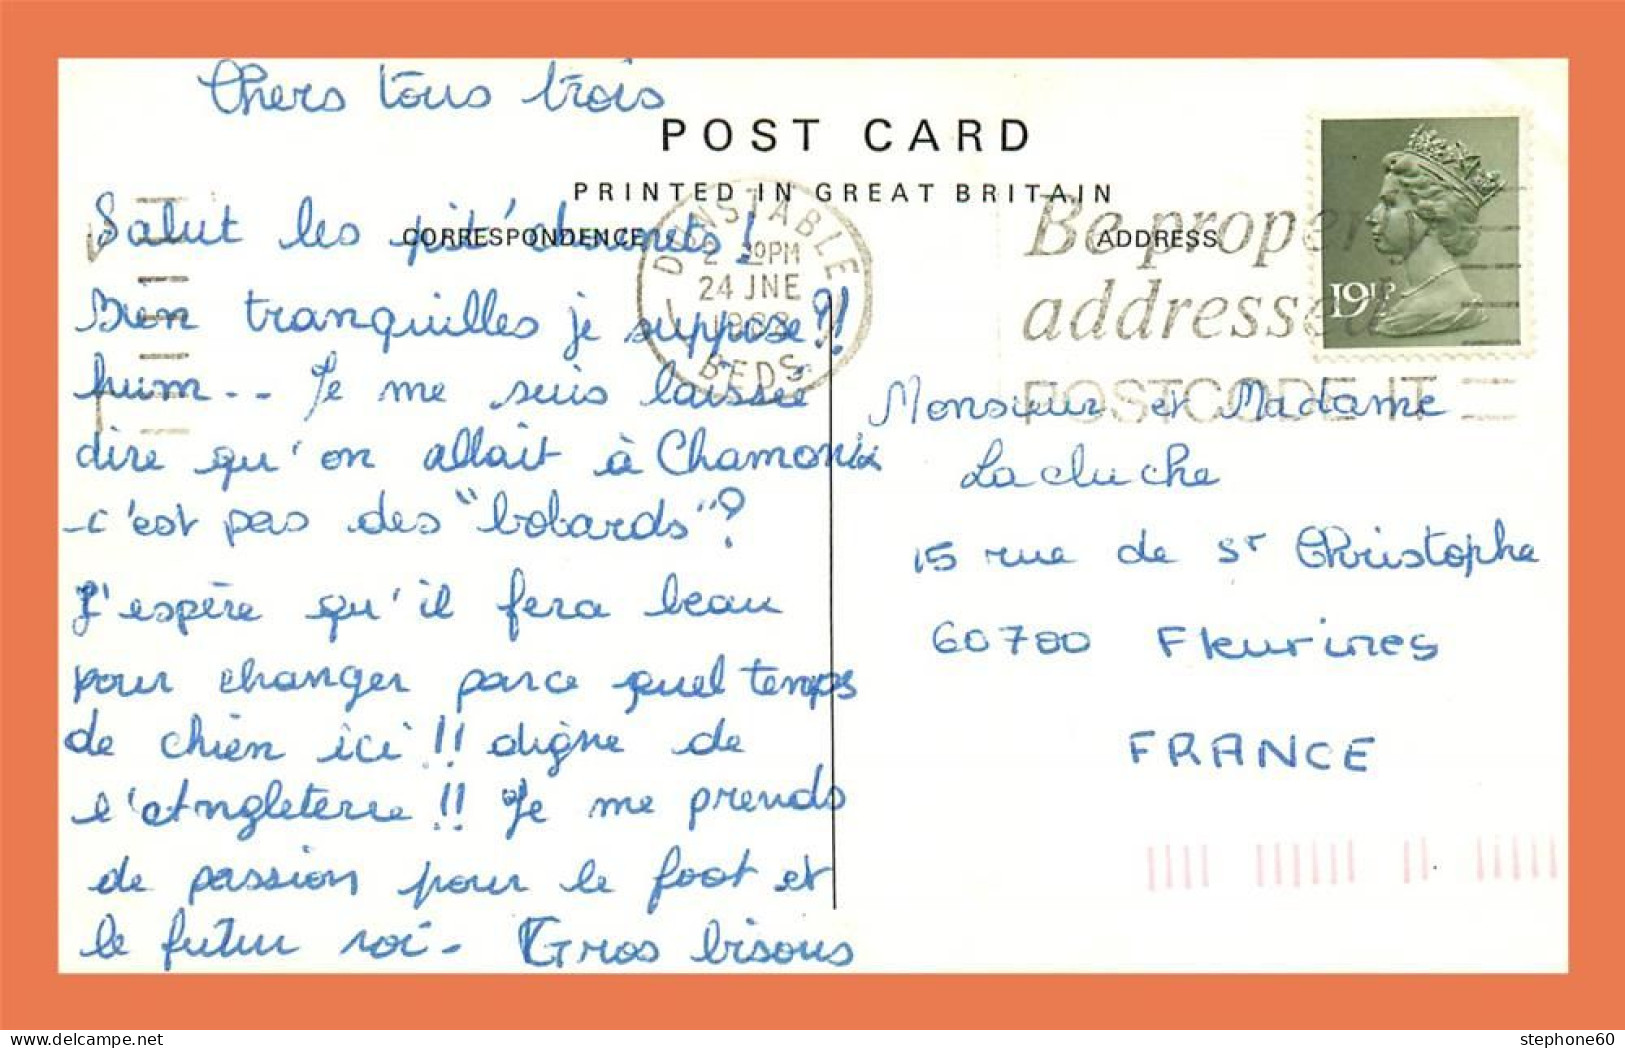 Chers tous trois
POST CARD
PRINTED IN GREAT BRITAIN
CORRESPONDENCE
ADDRESS
Salut les pit'chounets !
Bien tranquilles je suppose ?!!
hum.. Je me suis laissée
dire qu'on allait à Chamonix
c'est pas des "bobards"?
J'espère qu'il fera beau
pour changer parce quel temps
de chien ici !! digne de
l'Angleterre !! Je me prends
de passion pour le foot et
le futur roi - Gros bisous
DUNSTABLE
24 JNE
1982
BEDS
Be properly
addressed
POSTCODE IT
19½P
Monsieur et Madame
Lacluche
15 rue de St Christophe
60700 Fleurines
FRANCE
stephone60